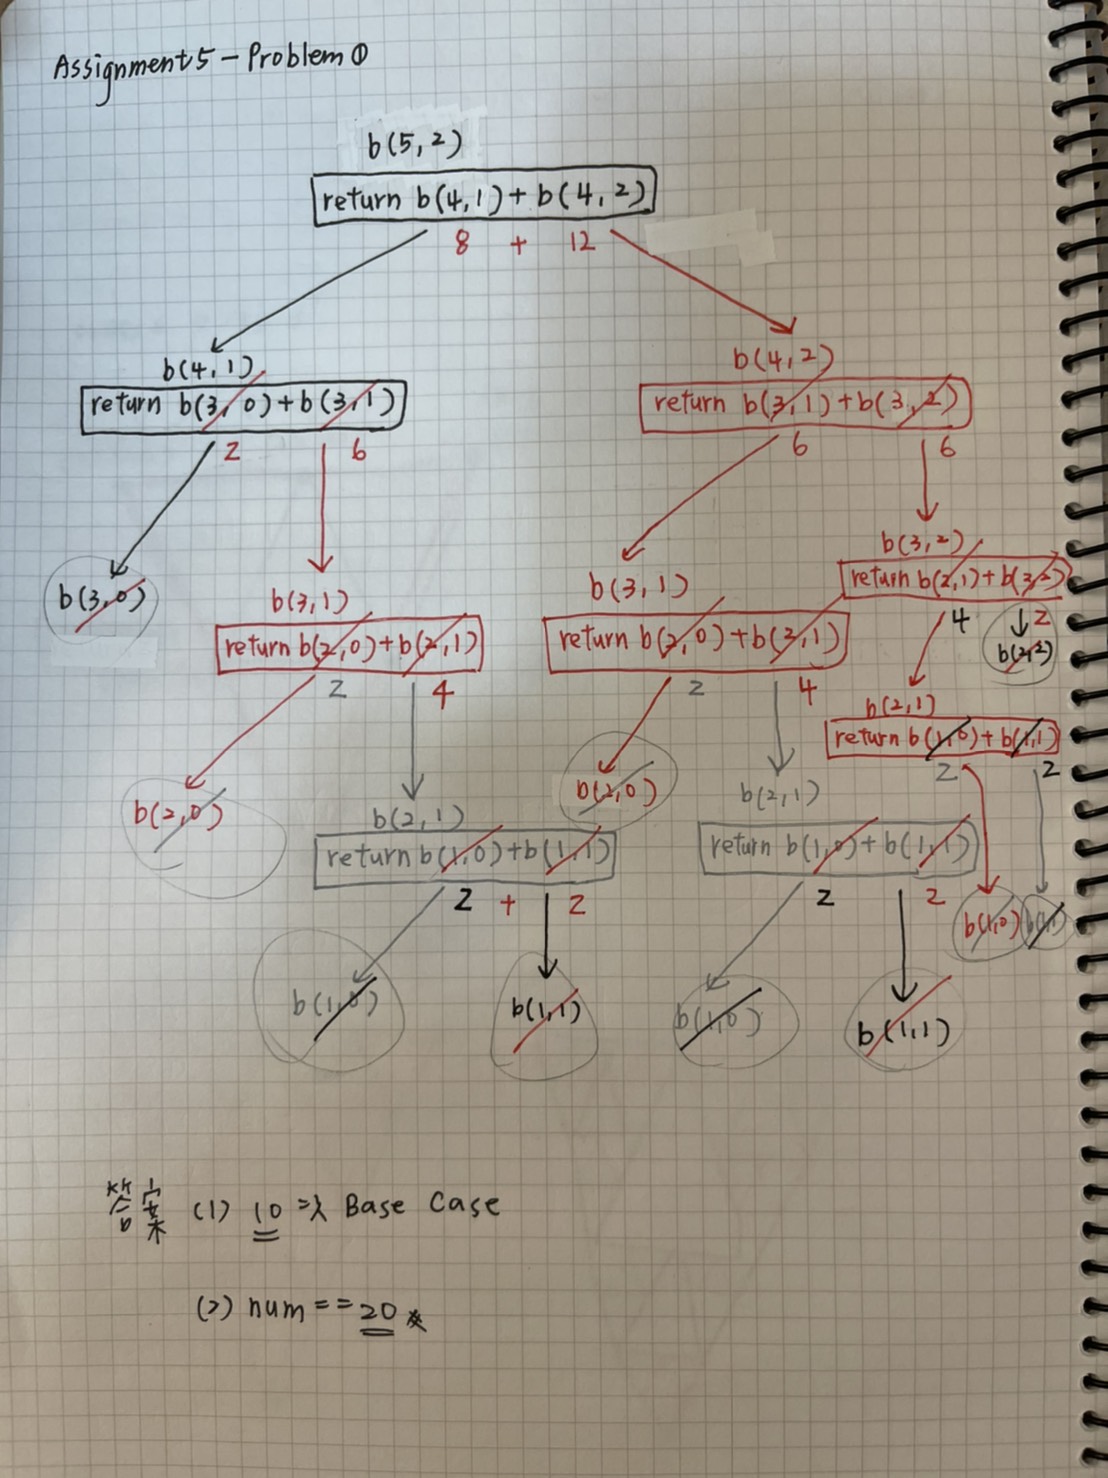 Assignment 5 - Problem ①
b(5,2)
return b(4,1)+b(4,2)
8 + 12
b(4,1)
return b(3,0)+b(3,1)
2 6
b(4,2)
return b(3,1)+b(3,2)
6 6
b(3,0)
b(3,1)
return b(2,0)+b(2,1)
2 4
b(3,1)
return b(2,0)+b(2,1)
2 4
b(3,2)
return b(2,1)+b(3,2)
4 2
b(2,2)
b(2,1)
return b(1,0)+b(1,1)
2 2
b(2,0)
b(2,1)
return b(1,0)+b(1,1)
2 + 2
b(2,0)
b(2,1)
return b(1,0)+b(1,1)
2 2
b(1,0) b(1,1)
b(1,0)
b(1,1)
b(1,0)
b(1,1)
答案 (1) 10次 Base Case
(2) num == 20